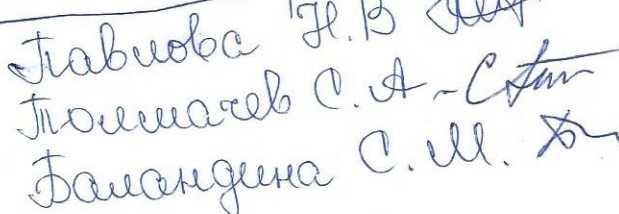 Павлова Н.В
Толмачев С.А -
Баландина С.М.